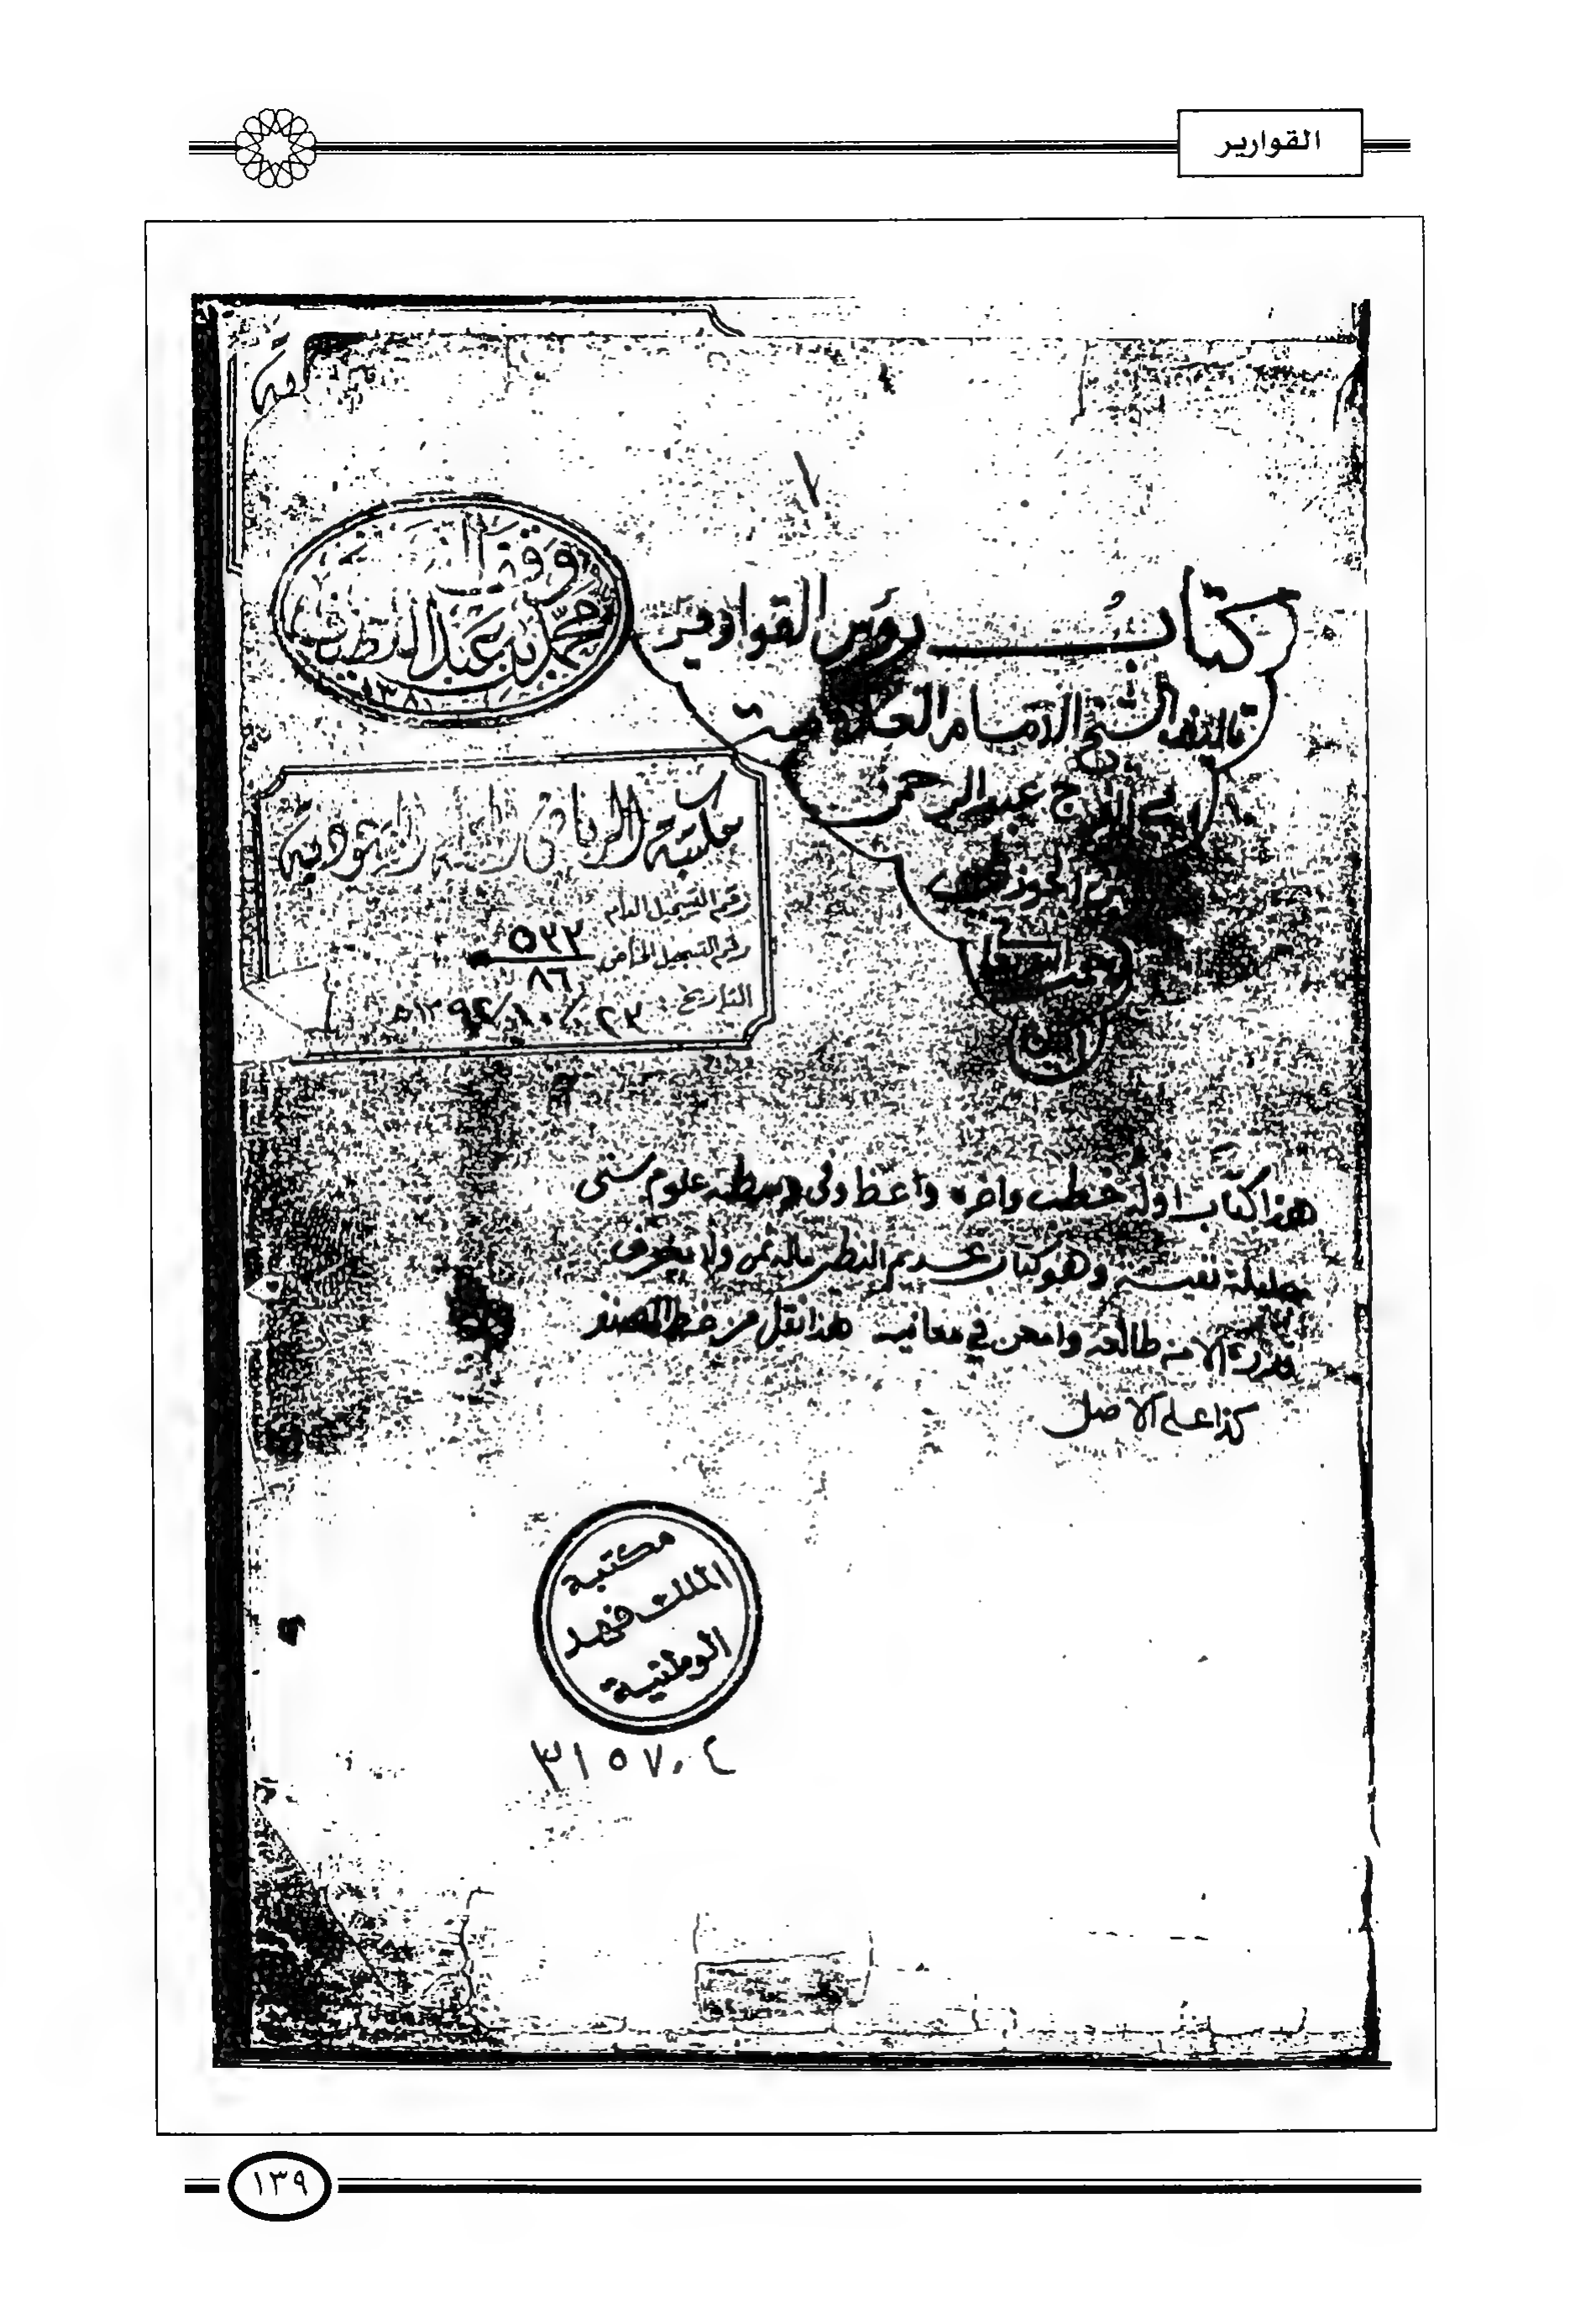 القوارير
وقف
محمد بن عبد اللطيف
١٣٨٠
كتاب رؤس القوارير
تاليف الشيخ الامام العلامة
ابي الفرج عبد الرحمن
بن الجوزي
تغمده الله
امين
مكتبة الرياض السعودية
رقم التسجيل العام
٥٢٢
رقم التسجيل الخاص
٨٦
التاريخ: ٢٣/١٠/١٣٩٢ه
هذا كتاب اوله خطب واخره واعظ وفي وسطه علوم شتى
جليلة نفيسه وهو كتاب عديم النظير بالثمن ولا يعرف
قدره الا من طالعه وامعن في معانيه هذا نقل من خط المصنف
كذا على الاصل
مكتبة
الملك فهد
الوطنية
٣١٥٧٠٤
١٣٩